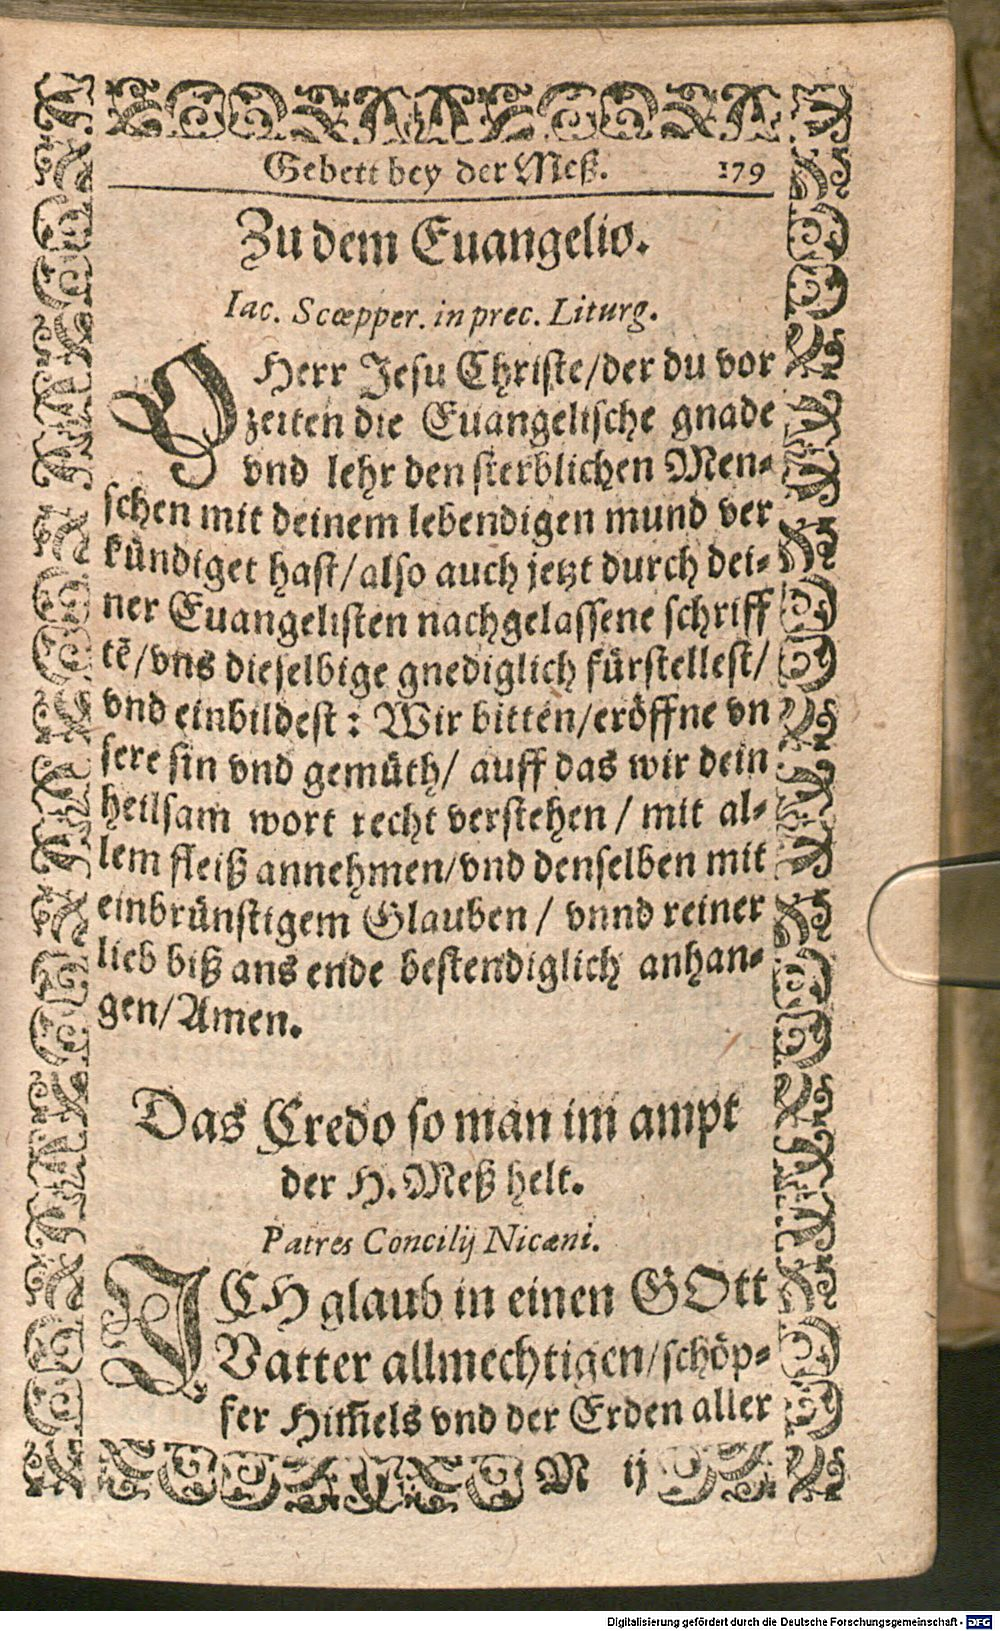 Gebett bey der Meß. 179
Zu dem Euangelio.
Iac. Scœpper. in prec. Liturg.
O Herr Jesu Christe/der du vor
zeiten die Euangelische gnade
vnd lehr den sterblichen Men-
schen mit deinem lebendigen mund ver
kündiget hast/also auch jetzt durch dei-
ner Euangelisten nachgelassene schriff
tē/vns dieselbige gnediglich fürstellest/
vnd einbildest: Wir bitten/eröffne vn
sere sin vnd gemüth/ auff das wir dein
heilsam wort recht verstehen / mit al-
lem fleiß annehmen/vnd denselben mit
einbrünstigem Glauben / vnnd reiner
lieb biß ans ende bestendiglich anhan-
gen/Amen.
Das Credo so man im ampt
der H. Meß helt.
Patres Concilij Nicæni.
ICH glaub in einen GOtt
Vatter allmechtigen/schöp-
fer Him̄els vnd der Erden aller
M ij
Digitalisierung gefördert durch die Deutsche Forschungsgemeinschaft - DFG